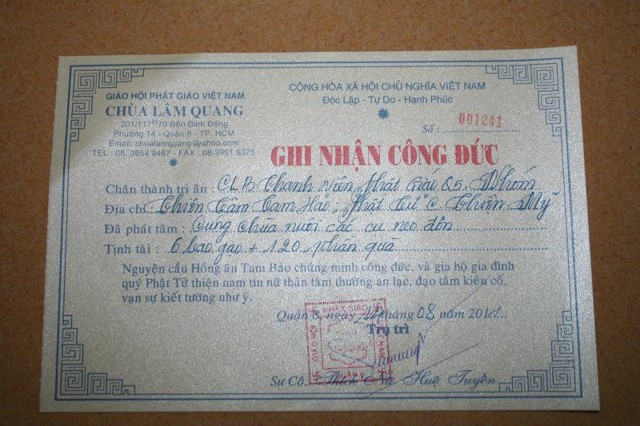 GIÁO HỘI PHẬT GIÁO VIỆT NAM
CHÙA LÂM QUANG
301/117-70 Bến Bình Đông
Phường 14 - Quận 8 - TP. HCM
Email: chualamquang@yahoo.com
TEL : 08. 3854 9467 - FAX : 08.3951 6375
CỘNG HÒA XÃ HỘI CHỦ NGHĨA VIỆT NAM
Độc Lập - Tự Do - Hạnh Phúc
Số : 001241
GHI NHẬN CÔNG ĐỨC
Chân thành tri ân : CLB Thanh Niên Phật Giáo Q5. Nhóm
Địa chỉ : Thiện Tâm Tam Hảo, Phật Tử C Thiên Mỹ
Đã phát tâm : Cúng Chùa nuôi các cụ neo đơn
Tịnh tài : 6 bao gạo + 120 phần quà
Nguyện cầu Hồng ân Tam Bảo chứng minh công đức, và gia hộ gia đình
quý Phật Tử thiện nam tín nữ thân tâm thường an lạc, đạo tâm kiên cố,
vạn sự kiết tường như ý.
Quận 8, ngày tháng 08 năm 2011
Trụ trì
PHẬT GIÁO
GIÁO HỘI
Sư Cô: Thích Nữ Huệ Tuyến